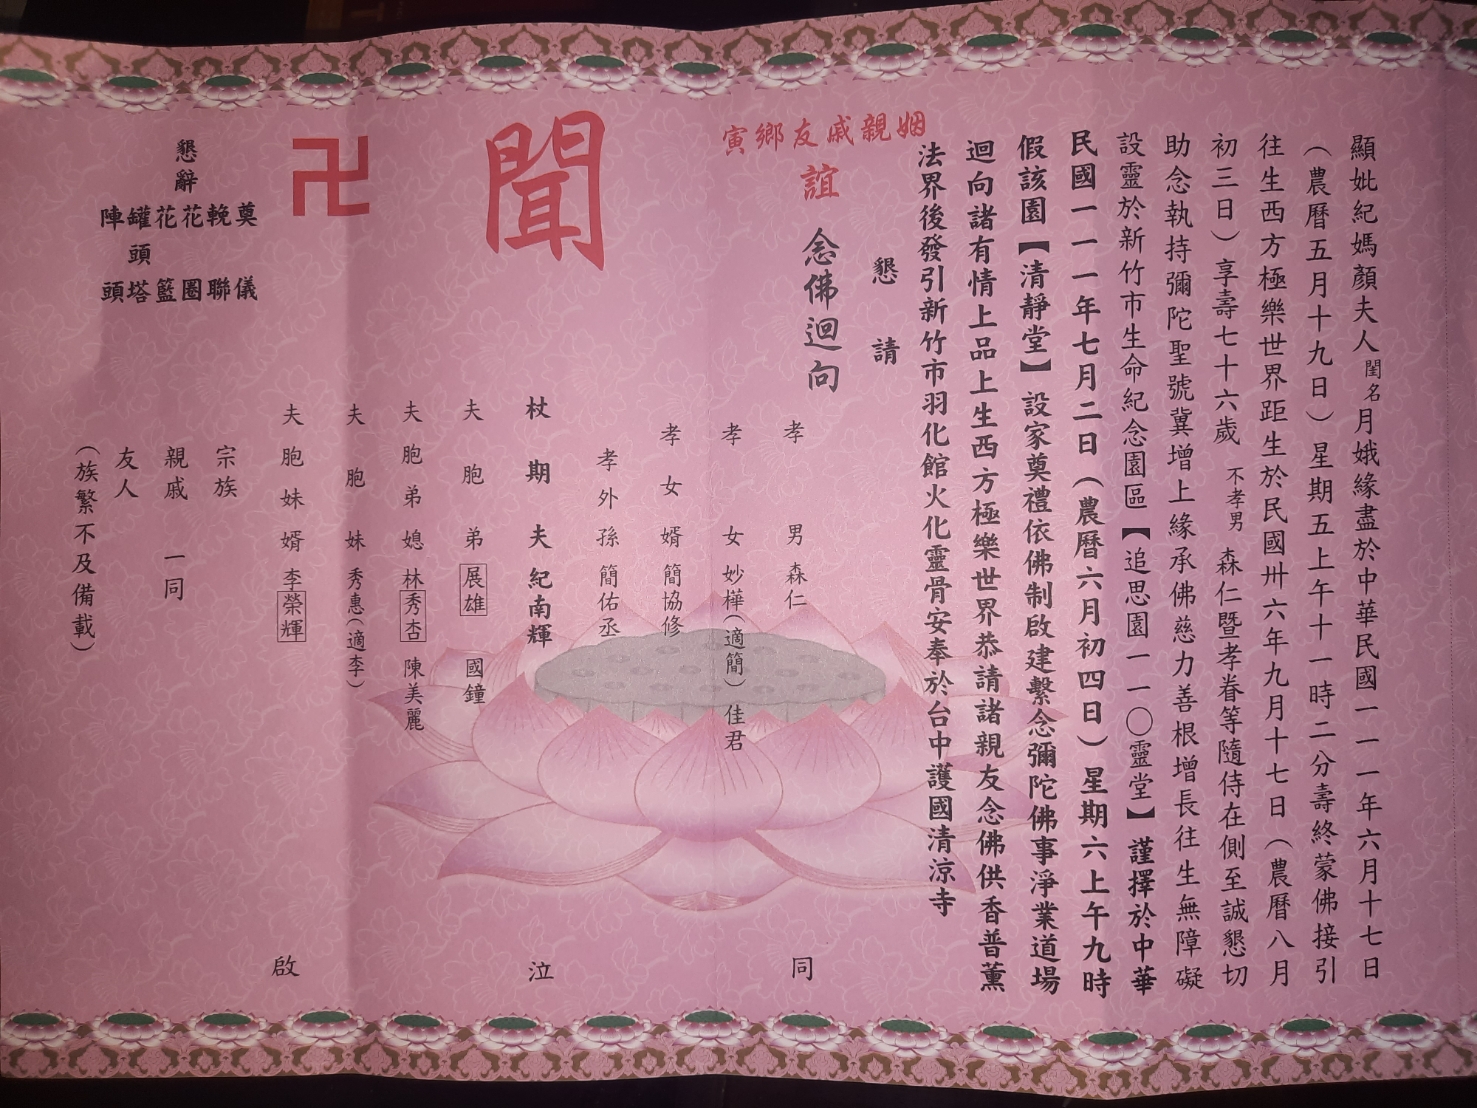 顯妣紀媽顏夫人閨名月娥緣盡於中華民國一一一年六月十七日
（農曆五月十九日）星期五上午十一時二分壽終蒙佛接引
往生西方極樂世界距生於民國卅六年九月十七日（農曆八月
初三日）享壽七十六歲 不孝男 森仁暨孝眷等隨侍在側至誠懇切
助念執持彌陀聖號冀增上緣承佛慈力善根增長往生無障礙
設靈於新竹市生命紀念園區【追思園一一〇靈堂】謹擇於中華
民國一一一年七月二日（農曆六月初四日）星期六上午九時
假該園【清靜堂】設家奠禮依佛制啟建繫念彌陀佛事淨業道場
迴向諸有情上品上生西方極樂世界恭請諸親友念佛供香普薰
法界後發引新竹市羽化館火化靈骨安奉於台中護國清涼寺
姻親戚友鄉寅
誼
懇請
念佛迴向
聞
卍
孝男 森仁
孝女 妙樺（適簡）佳君
孝女婿 簡協修
孝外孫 簡佑丞
杖期夫 紀南輝
夫胞弟 展雄 國鐘
夫胞弟媳 林秀杏 陳美麗
夫胞妹 秀惠（適李）
夫胞妹婿 李榮輝
宗族
親戚 一同
友人
（族繁不及備載）
同泣啟
懇辭
奠儀
輓聯
花圈
花籃
罐頭塔
陣頭